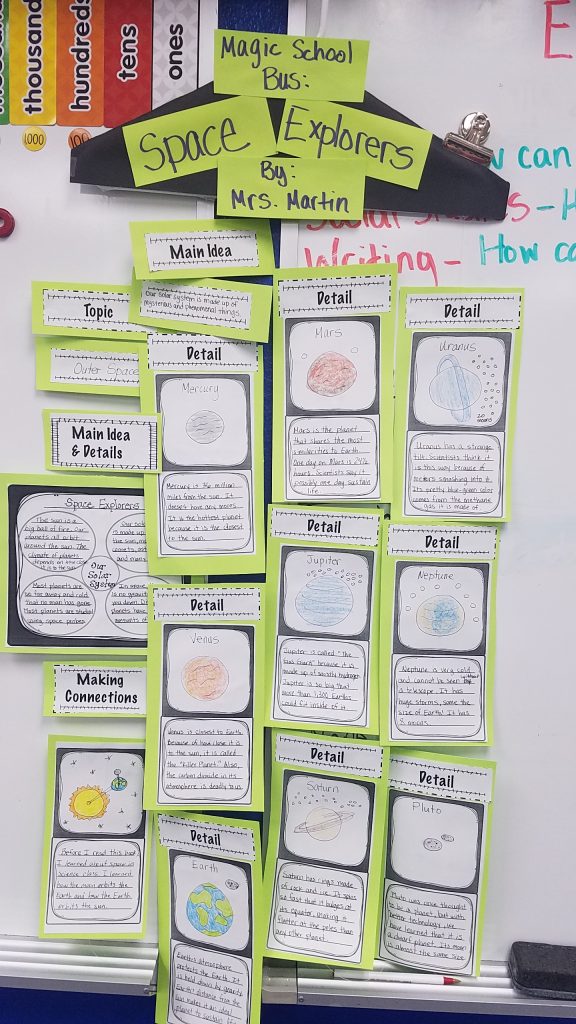 thousands
hundreds
tens
ones
1,000
100
Magic School
Bus:
Space
Explorers
By:
Mrs. Martin
E
can
Social Studies -
Writing - How
Main Idea
Our solar system is made up of
mysterious and phenomenal things.
Topic
Outer Space
Main Idea
& Details
Space Explorers
The sun is a
big ball of fire. Our
planets all orbit
around the sun. The
climate of planets
depends on
is to the sun.
is made up
the sun,
Most planets are
so far away and cold
that no man has gone.
Most planets are studied
using space probes.
is no gravity
you down.
planets have
amounts of
Our
Solar
System
Making
Connections
Before I read this book
I learned about space in
science class. I learned
how the moon orbits the
Earth and how the Earth
orbits the sun.
Detail
Mercury
Mercury is the million
miles from the sun. It
doesn't have any moons.
It is the hottest planet
because it is the closest
to the sun.
Detail
Venus
Venus is closest to Earth.
Because of how close it is
to the sun, it is called
the "Killer Planet." Also,
the carbon dioxide in its
atmosphere is deadly to us.
Detail
Earth
Earth's atmosphere
protects the Earth. It
is held down by gravity.
Earth' distance from the
sun makes it an ideal
planet to sustain life.
Detail
Mars
Mars is the planet
that shares the most
similarities to Earth.
One day on Mars is 24½
hours. Scientists say it
possibly one day sustain
life.
Detail
Jupiter
Jupiter is called "The
Gas Giant" because it is
made up of mostly hydrogen.
Jupiter is so big that
more than 1,300 Earths
could fit inside of it.
Detail
Saturn
Saturn has rings made
of rock and ice. It spins
so fast that it bulges at
its equator, making it
flatter at the poles than
any other planet.
Detail
Uranus
20
moons
Uranus has a strange
tilt. Scientists think it
is this way because of
meteors smashing into it.
Its pretty blue-green color
comes from the methane
gas it is made of.
Detail
Neptune
Neptune is very cold
and cannot be seen without
a telescope. It has
huge storms, some the
size of Earth! It has
8 moons.
Detail
Pluto
Pluto was once thought
to be a planet, but with
better technology we
have learned that it is
a dwarf planet. Its moon
is almost the same size